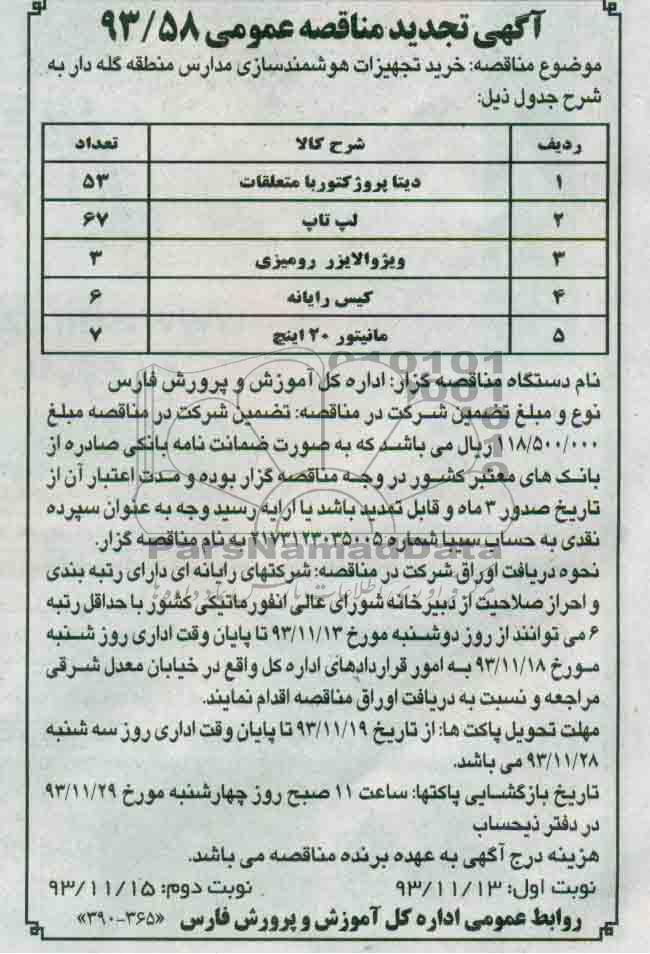 آگهی تجدید مناقصه عمومی ۹۳/۵۸
موضوع مناقصه: خرید تجهیزات هوشمندسازی مدارس منطقه گله دار به
شرح جدول ذیل:
ردیف شرح کالا تعداد
۱ دیتا پروژکتوربا متعلقات ۵۳
۲ لپ تاپ ۶۷
۳ ویژوالایزر رومیزی ۳
۴ کیس رایانه ۶
۵ مانیتور ۲۰ اینچ ۷
نام دستگاه مناقصه گزار: اداره کل آموزش و پرورش فارس
نوع و مبلغ تضمین شرکت در مناقصه: تضمین شرکت در مناقصه مبلغ
۱۱۸/۵۰۰/۰۰۰ ریال می باشد که به صورت ضمانت نامه بانکی صادره از
بانک های معتبر کشور در وجه مناقصه گزار بوده و مدت اعتبار آن از
تاریخ صدور ۳ ماه و قابل تمدید باشد یا ارایه رسید وجه به عنوان سپرده
نقدی به حساب سیبا شماره ۲۱۷۳۱۲۳۰۳۵۰۰۵ به نام مناقصه گزار.
نحوه دریافت اوراق شرکت در مناقصه: شرکتهای رایانه ای دارای رتبه بندی
و احراز صلاحیت از دبیرخانه شورای عالی انفورماتیکی کشور با حداقل رتبه
۶ می توانند از روز دوشنبه مورخ ۹۳/۱۱/۱۳ تا پایان وقت اداری روز شنبه
مورخ ۹۳/۱۱/۱۸ به امور قراردادهای اداره کل واقع در خیابان معدل شرقی
مراجعه و نسبت به دریافت اوراق مناقصه اقدام نمایند.
مهلت تحویل پاکت ها: از تاریخ ۹۳/۱۱/۱۹ تا پایان وقت اداری روز سه شنبه
۹۳/۱۱/۲۸ می باشد.
تاریخ بازگشایی پاکتها: ساعت ۱۱ صبح روز چهارشنبه مورخ ۹۳/۱۱/۲۹
در دفتر ذیحساب
هزینه درج آگهی به عهده برنده مناقصه می باشد.
نوبت اول: ۹۳/۱۱/۱۳ نوبت دوم: ۹۳/۱۱/۱۵
روابط عمومی اداره کل آموزش و پرورش فارس «۳۹۰-۳۶۵»
ParsNamadData